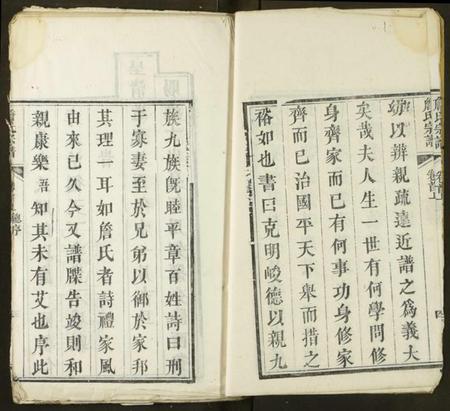 詹氏宗譜
卷首上
所以辨親疏遠近譜之為義大
矣哉夫人生一世有何學問修
身齊家而已有何事功身修家
齊而已治國平天下舉而措之
裕如也書曰克明峻德以親九
族九族既睦平章百姓詩曰刑
于寡妻至於兄弟以御於家邦
其理一耳如詹氏者詩禮家風
由來已久今又譜牒告竣則和
親康樂吾知其未有艾也序此
總序